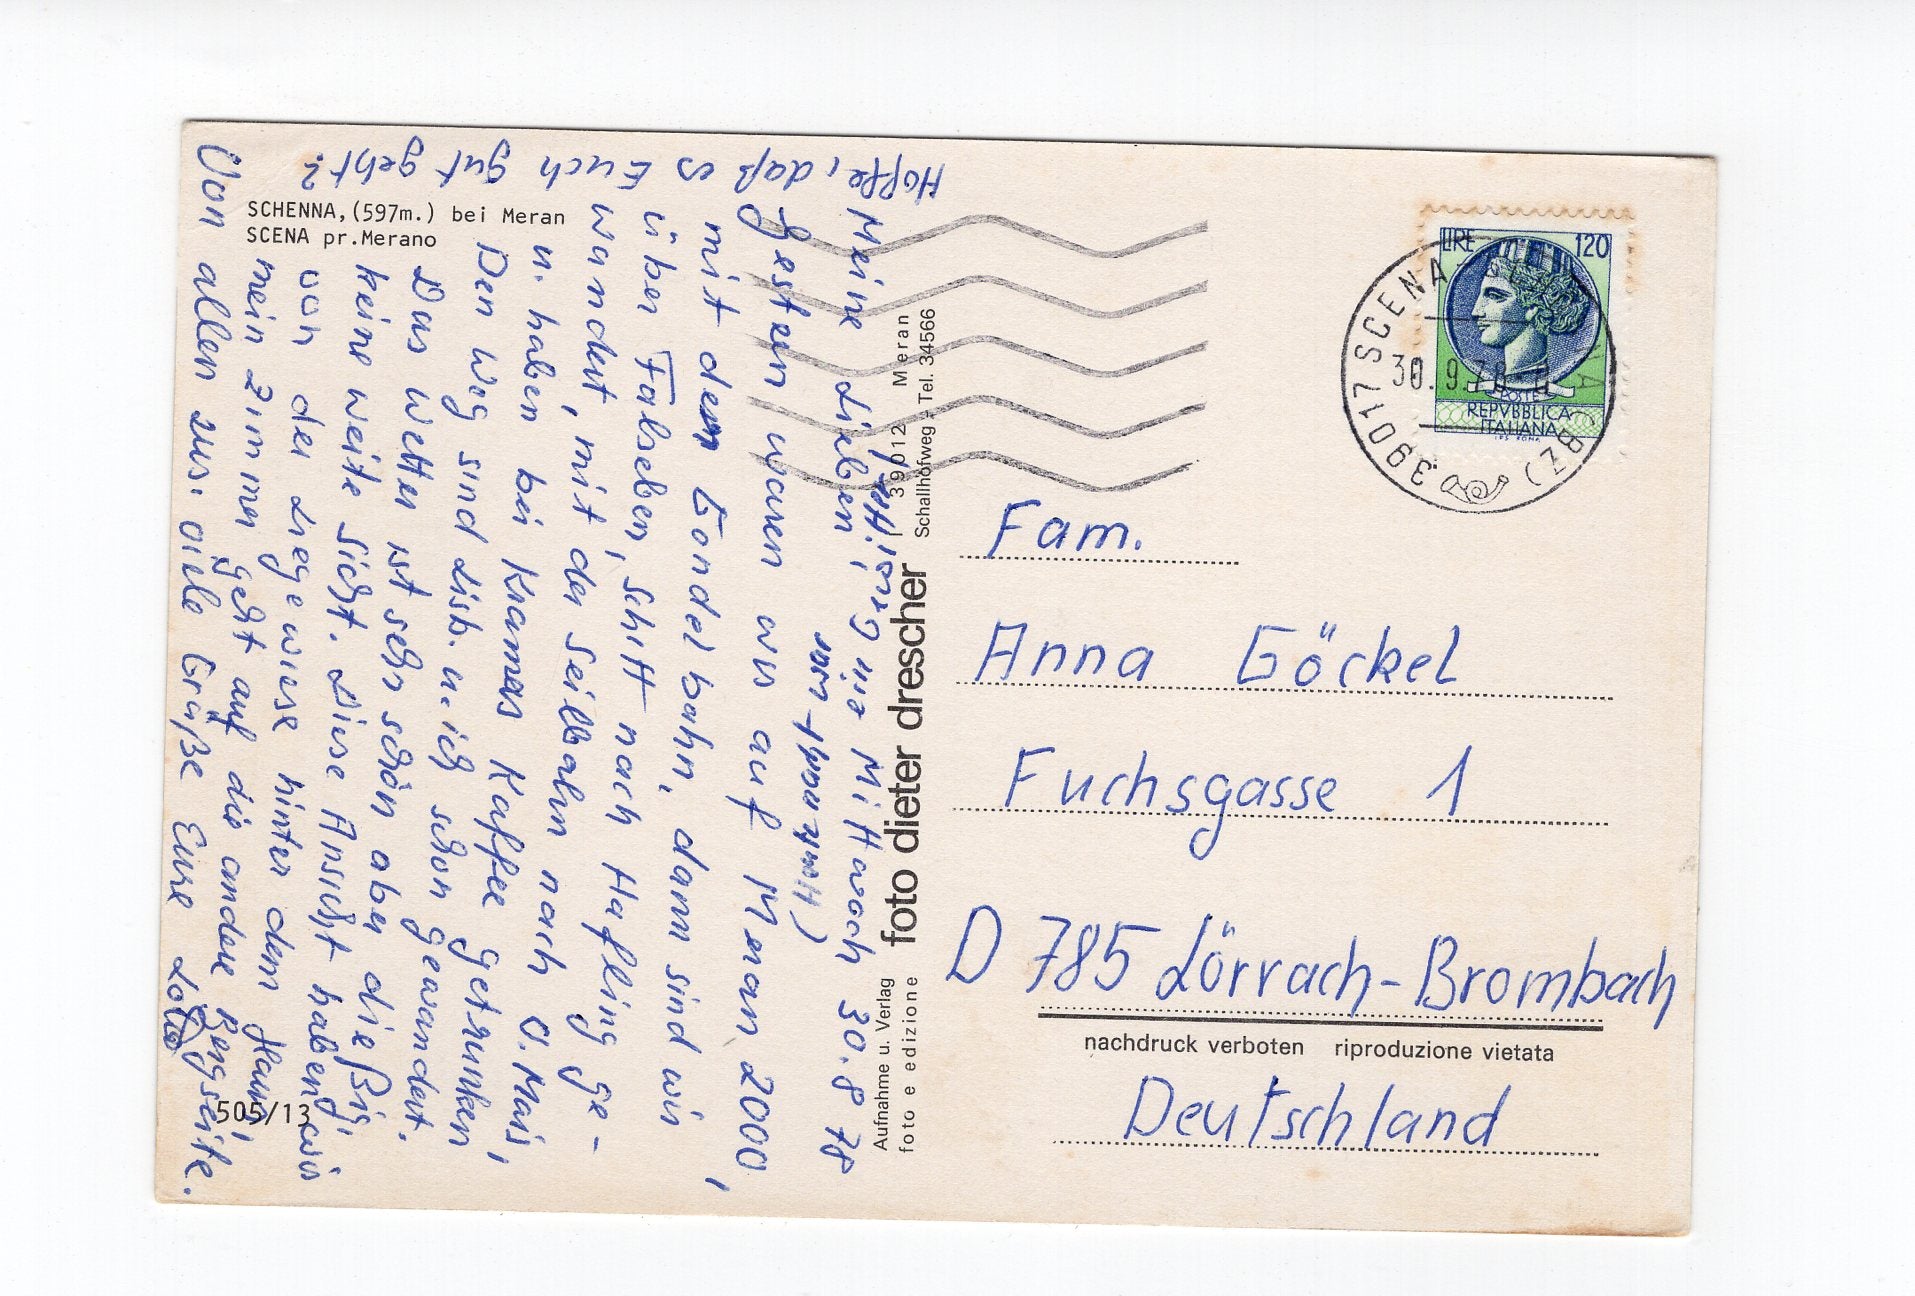 SCHENNA, (597m.) bei Meran
SCENA pr. Merano
Mittwoch 30.8 78
Meine Lieben!
Gestern waren wir auf Meran 2000,
mit der Gondelbahn, dann sind wir
über Falseben, schitt nach Hafling ge-
wandert, mit der Seilbahn nach O. Mais,
u. haben bei Kramer Kaffee getrunken
Den Weg sind Lisb. u. ich schon gewandert.
Das Wetter ist sehr schön aber dießig,
keine weite Sicht. Diese Ansicht haben wir
von der Liegewiese hinter dem Haus,
mein Zimmer geht auf die andere Bergseite.
Von allen rus. viele Grüße Eure
Hoffe, daß es Euch gut geht?
505/13
Aufnahme u. Verlag
foto e edizione
foto dieter drescher
39012 Meran
Schallhofweg - Tel. 34566
LIRE 120
POSTE
REPVBBLICA
ITALIANA
I.P.S. ROMA
39017 SCENA (BZ)
30.9.78
Fam.
Anna Göckel
Fuchsgasse 1
D 785 Lörrach-Brombach
nachdruck verboten riproduzione vietata
Deutschland